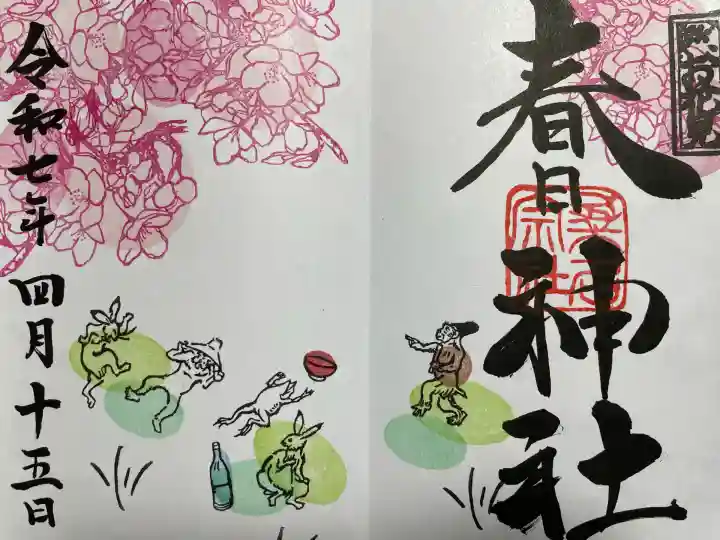 春日神社
令和七年 四月十五日